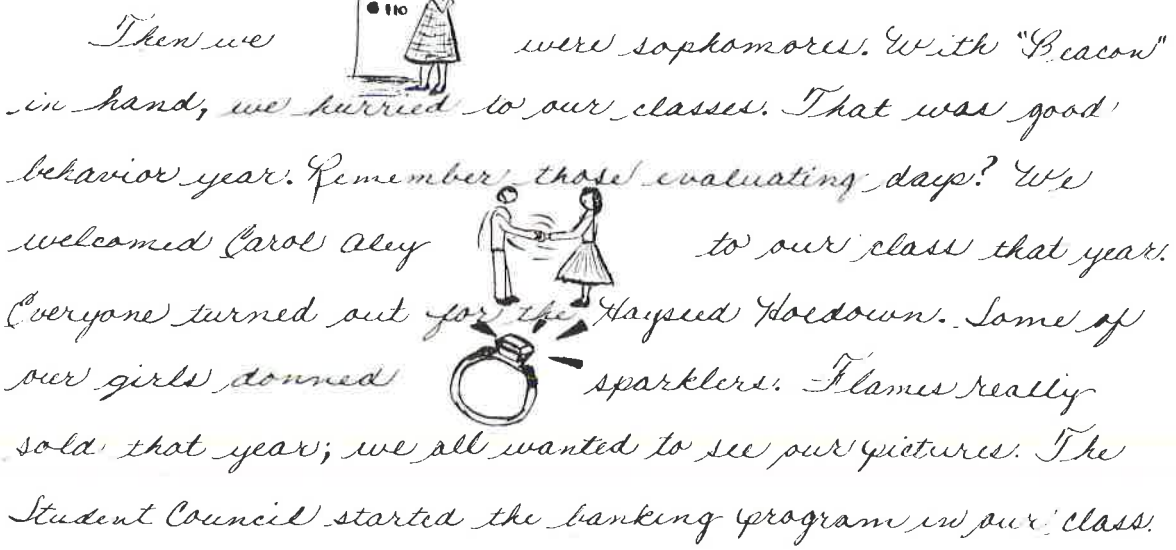 110
Then we were sophomores. With "Beacon"
in hand, we hurried to our classes. That was good
behavior year. Remember those evaluating days? We
welcomed Carol Aley to our class that year.
Everyone turned out for the Hayseed Hoedown. Some of
our girls donned sparklers. Flames really
sold that year; we all wanted to see our pictures. The
Student Council started the banking program in our class.